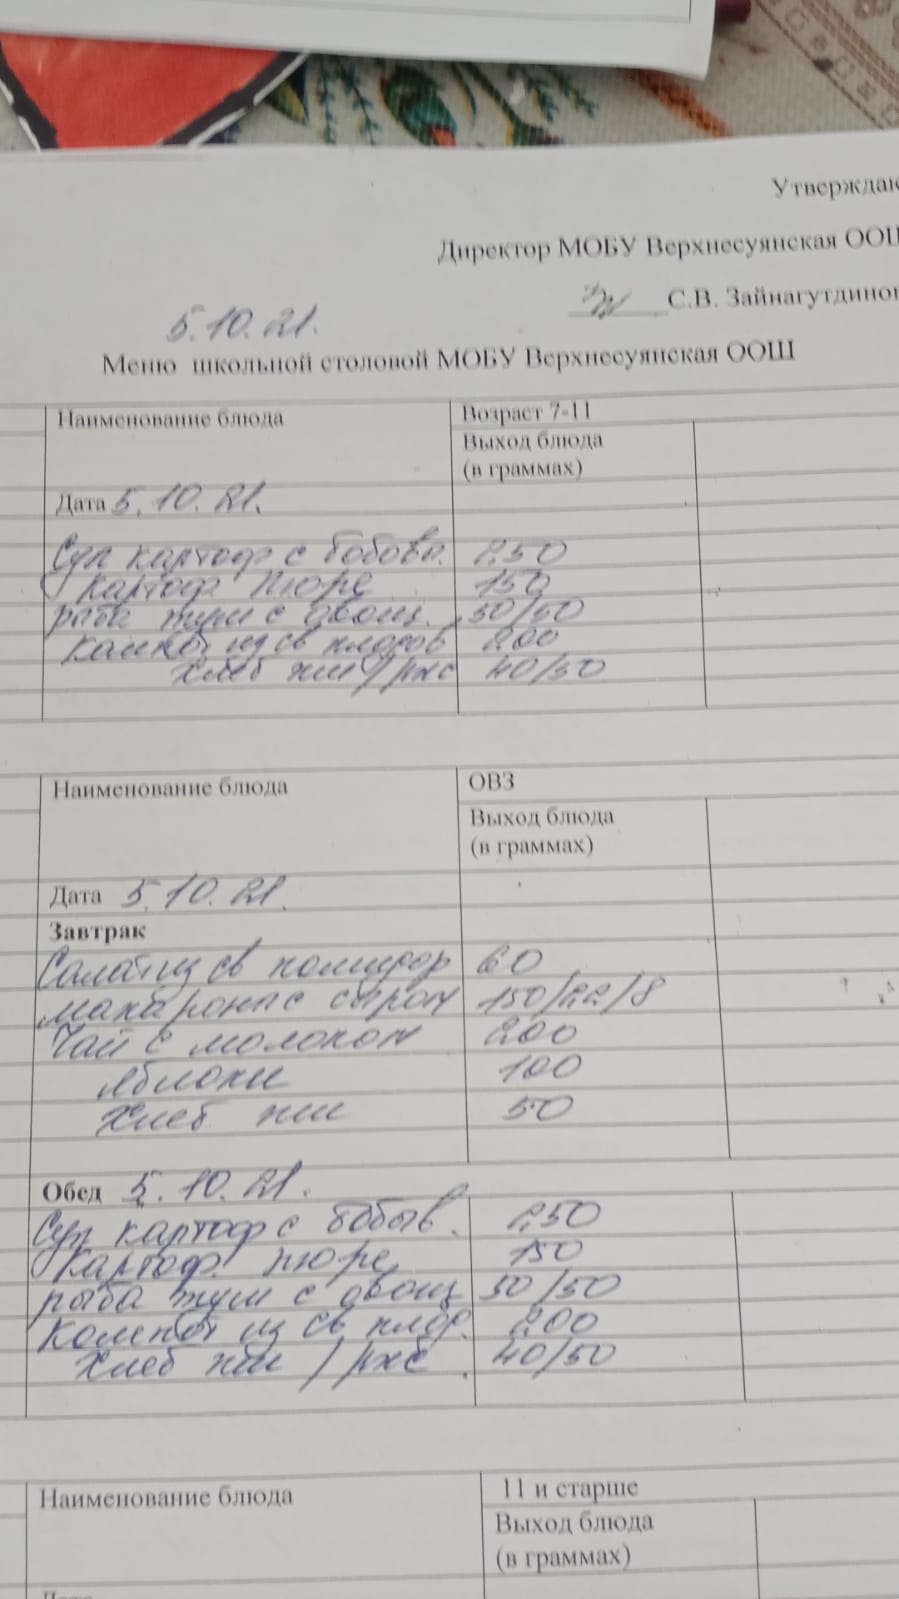 Утверждаю
Директор МОБУ Верхнесуянская ООШ
С.В. Зайнагутдинов
5.10.21.
Меню школьной столовой МОБУ Верхнесуянская ООШ
Наименование блюда Возраст 7-11
Выход блюда
(в граммах)
Дата 5.10.21.
Суп картоф с бобовы. 250
Картоф пюре 150
рыба туш с овощ. 50/50
Компот из св плодов 200
Хлеб пш/рж 40/50
Наименование блюда ОВЗ
Выход блюда
(в граммах)
Дата 5.10.21.
Завтрак
Салат из св помидор 60
макароны с сыром 150/22/8
Чай с молоком 200
яблоки 100
Хлеб пш 50
Обед 5.10.21.
Суп картоф с бобыв. 250
Картоф. пюре 150
рыба туш с овощ 50/50
Компот из св плод. 200
Хлеб пш/рж 40/50
Наименование блюда 11 и старше
Выход блюда
(в граммах)